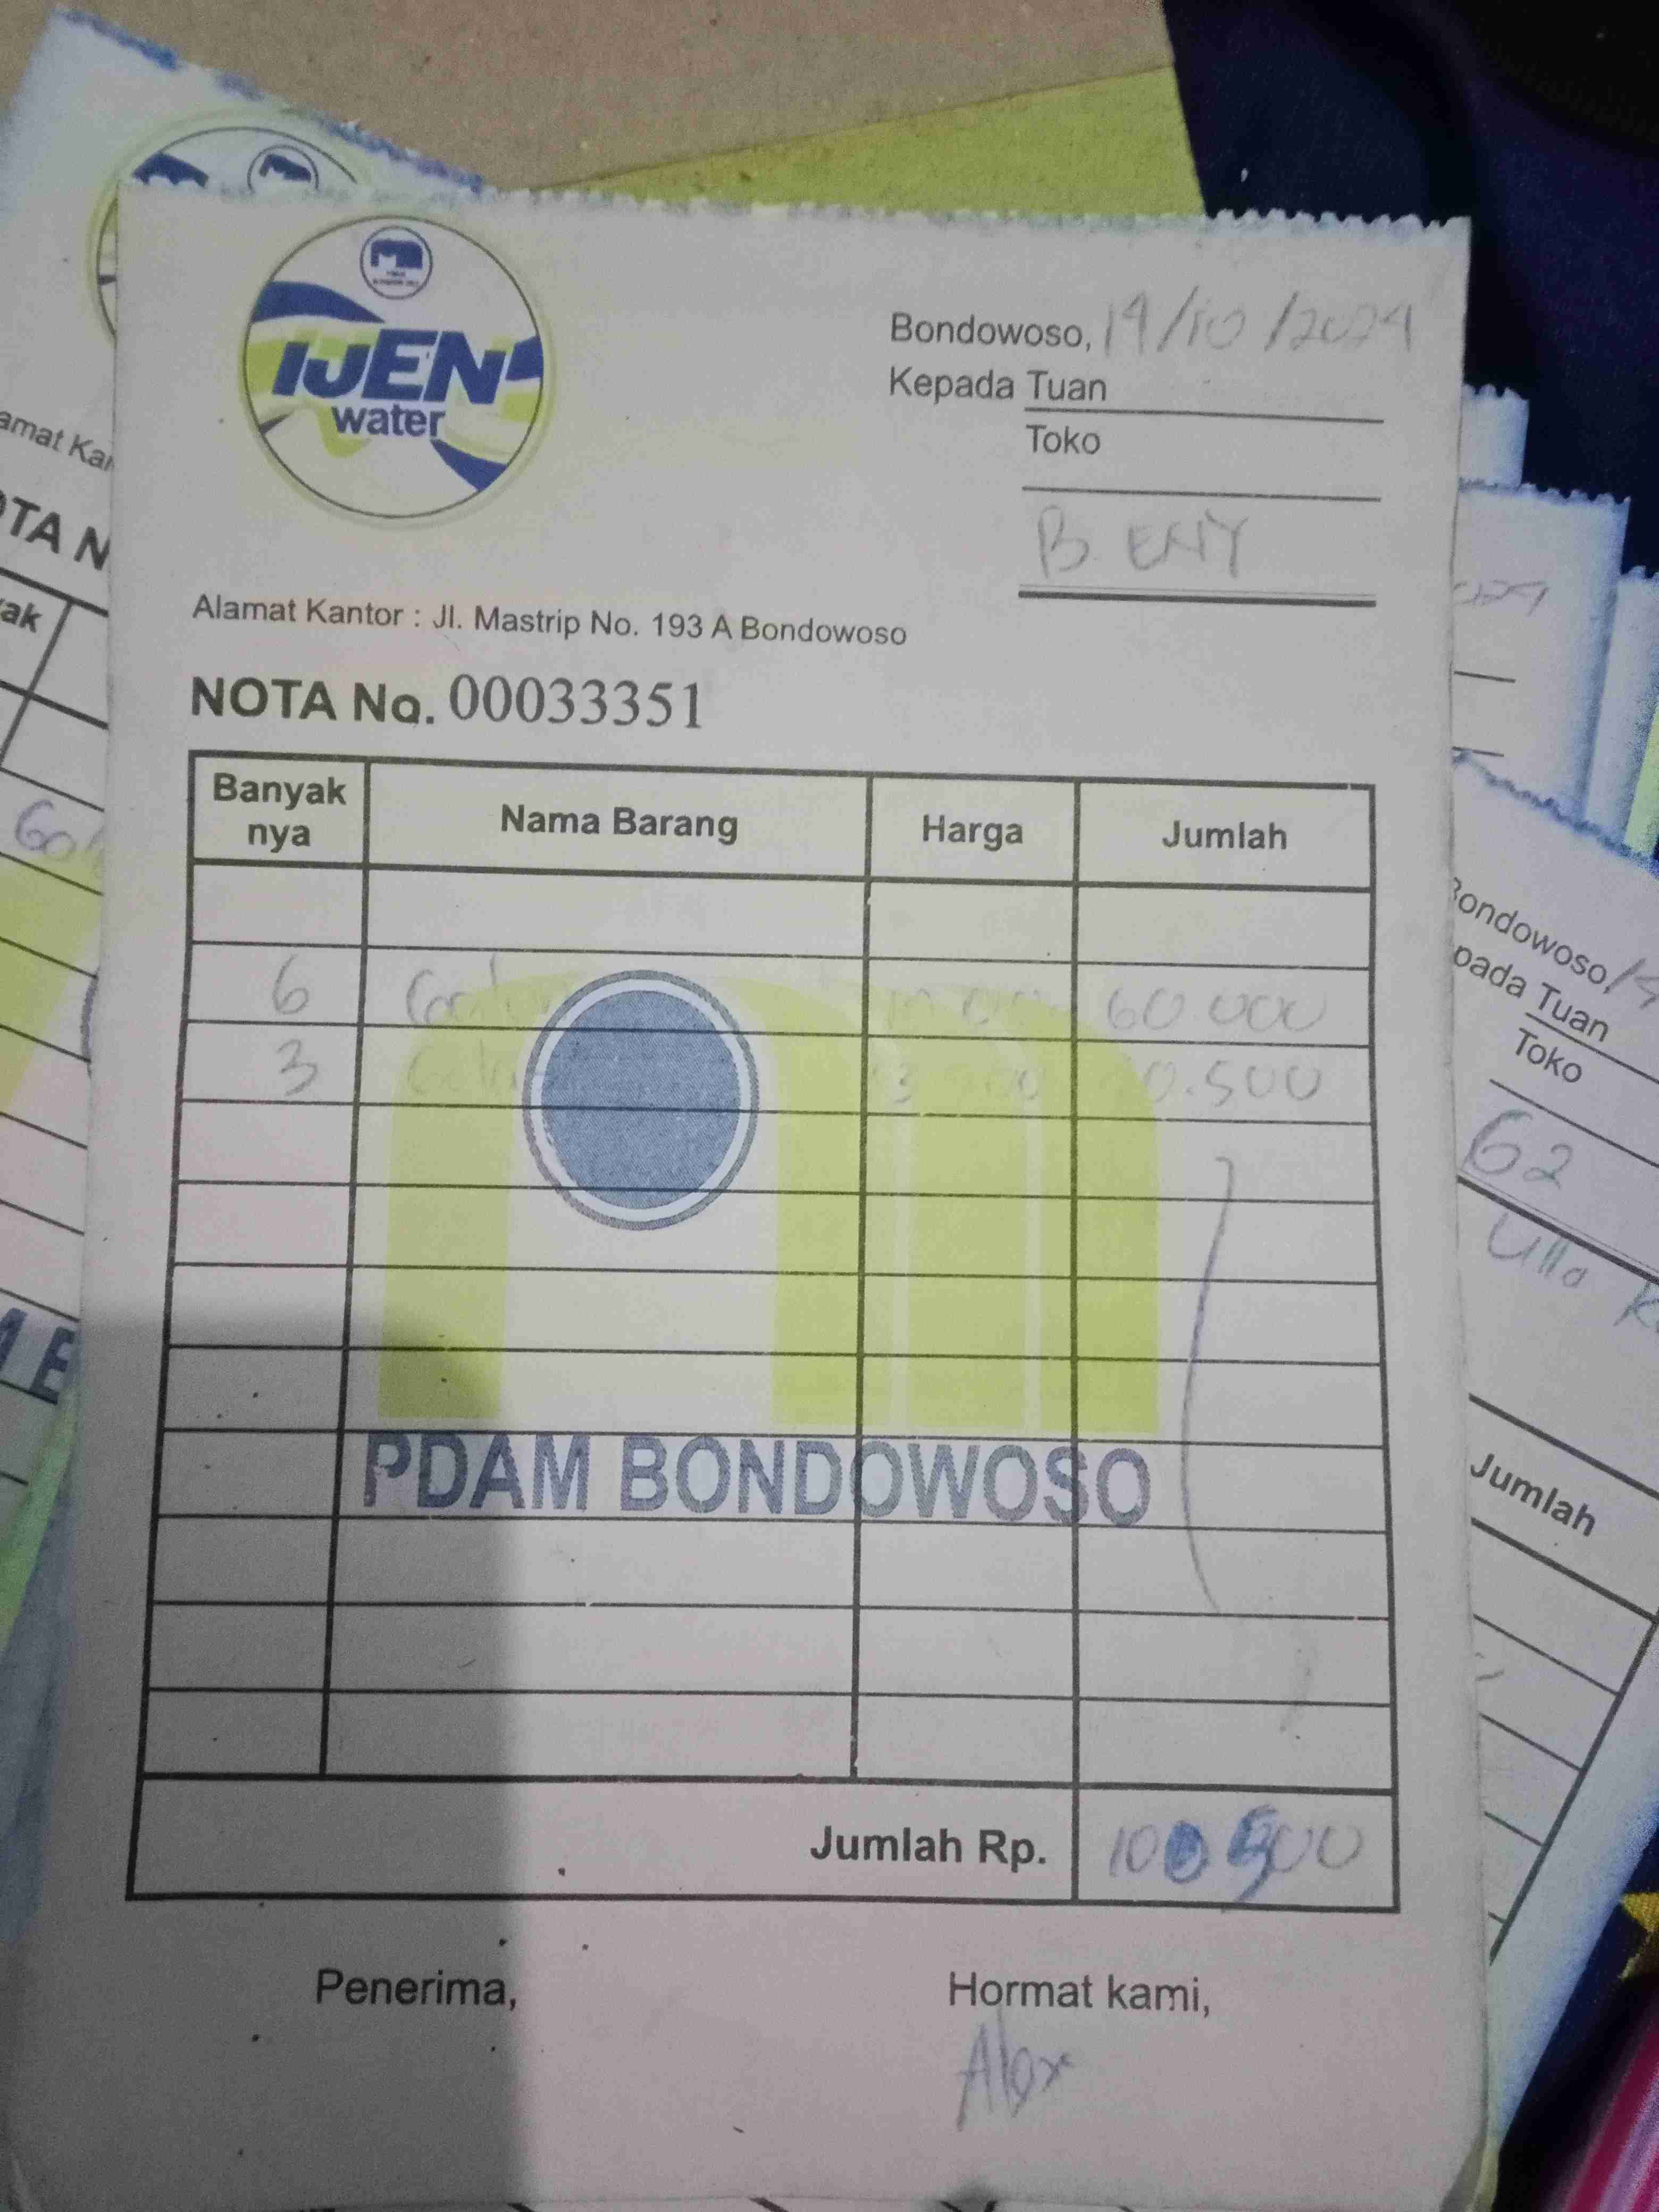 IJEN
water
Bondowoso, 19/10/2024
Kepada Tuan
Toko
B. ENY
Alamat Kantor : Jl. Mastrip No. 193 A Bondowoso
NOTA No. 00033351
Banyak nya Nama Barang Harga Jumlah
6 60.000
3
PDAM BONDOWOSO
Jumlah Rp. 100.500
Penerima, Hormat kami,
Alex
amat Kan
OTA N
ak
Bondowoso,
pada Tuan
Toko
62
Jumlah